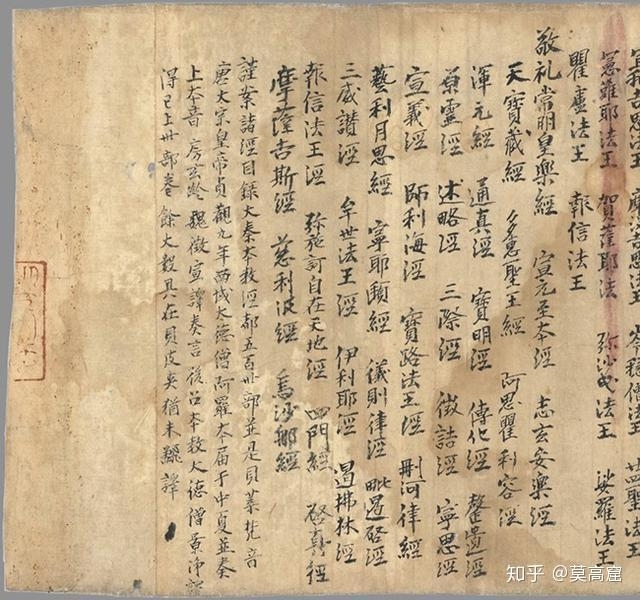 憲難耶法王 賀薩耶法王 弥沙曳法王 娑羅法王
瞿盧法王 報信法王
敬礼常明皇樂經 宣元至本經 志玄安樂經
天寶藏經 多惠聖王經 阿思瞿利容經
渾元經 通真經 寶明經 傳化經 罄遺經
原靈經 述略經 三際經 徵詰經 寧思經
宣義經 師利海經 寶路法王經 刪河律經
藝利月思經 寧耶頲經 儀則律經 毗遏啓經
三威讚經 牟世法王經 伊利耶經 遏拂林經
報信法王經 弥施訶自在天地經 四門經 啓真經
摩薩吉斯經 慈利波經 烏沙那經
謹案諸經目錄大秦本教經都五百卅部並是貝葉梵音
唐太宗皇帝貞觀九年西域太德僧阿羅本屆于中夏並奏
上本音房玄齡魏徵宣譯奏言後召本教大德僧景净譯
得已上卅部卷餘大數具在貝皮夾猶未翻譯
知乎 @莫高窟